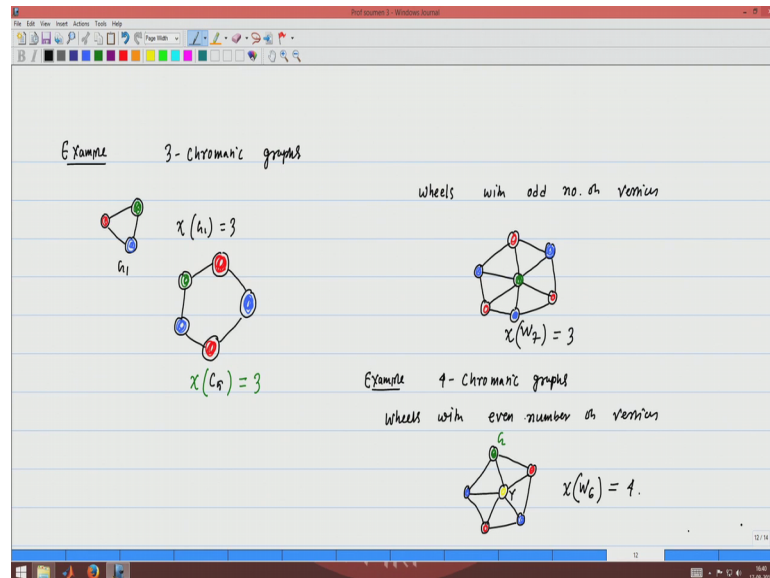 Prof soumen 3 - Windows Journal
File Edit View Insert Actions Tools Help
Page Width
B I
Example 3-chromatic graphs
G1
χ(G1) = 3
χ(C5) = 3
Wheels with odd no. of vertices
χ(W7) = 3
Example 4-chromatic graphs
Wheels with even number of vertices
G
Y
χ(W6) = 4.
12 / 14
12
16:40